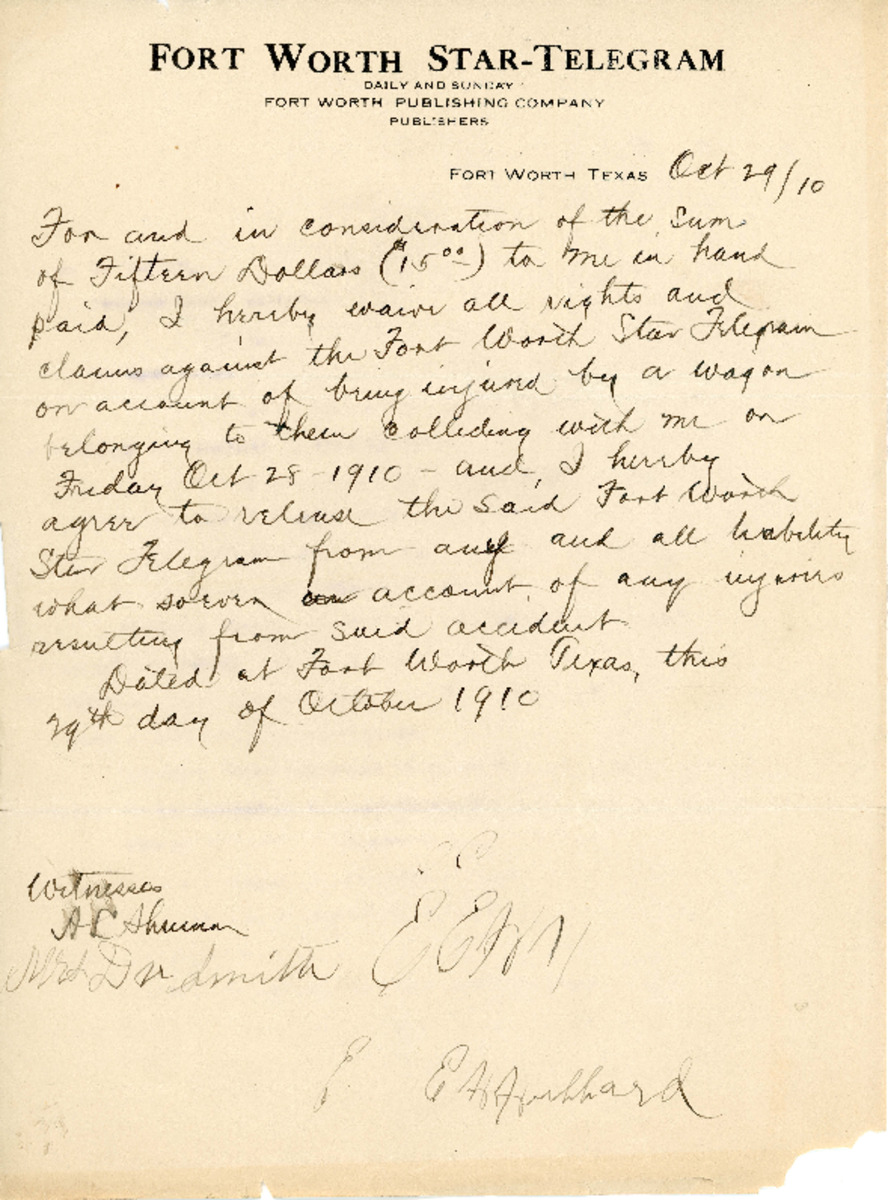 FORT WORTH STAR-TELEGRAM
DAILY AND SUNDAY
FORT WORTH PUBLISHING COMPANY
PUBLISHERS
FORT WORTH TEXAS Oct 29/10
For and in consideration of the sum
of Fifteen Dollars ($15.00) to me in hand
paid, I hereby waive all rights and
claims against the Fort Worth Star Telegram
on account of being injured by a wagon
belonging to them colliding with me on
Friday Oct 28-1910 - and, I hereby
agree to release the said Fort Worth
Star Telegram from any and all liability
what soever on account of any injuries
resulting from said accident
Dated at Fort Worth Texas, this
29th day of October 1910
Witnesses
A L Shuman
Mrs Dr Smith
E
E E H Hubbard